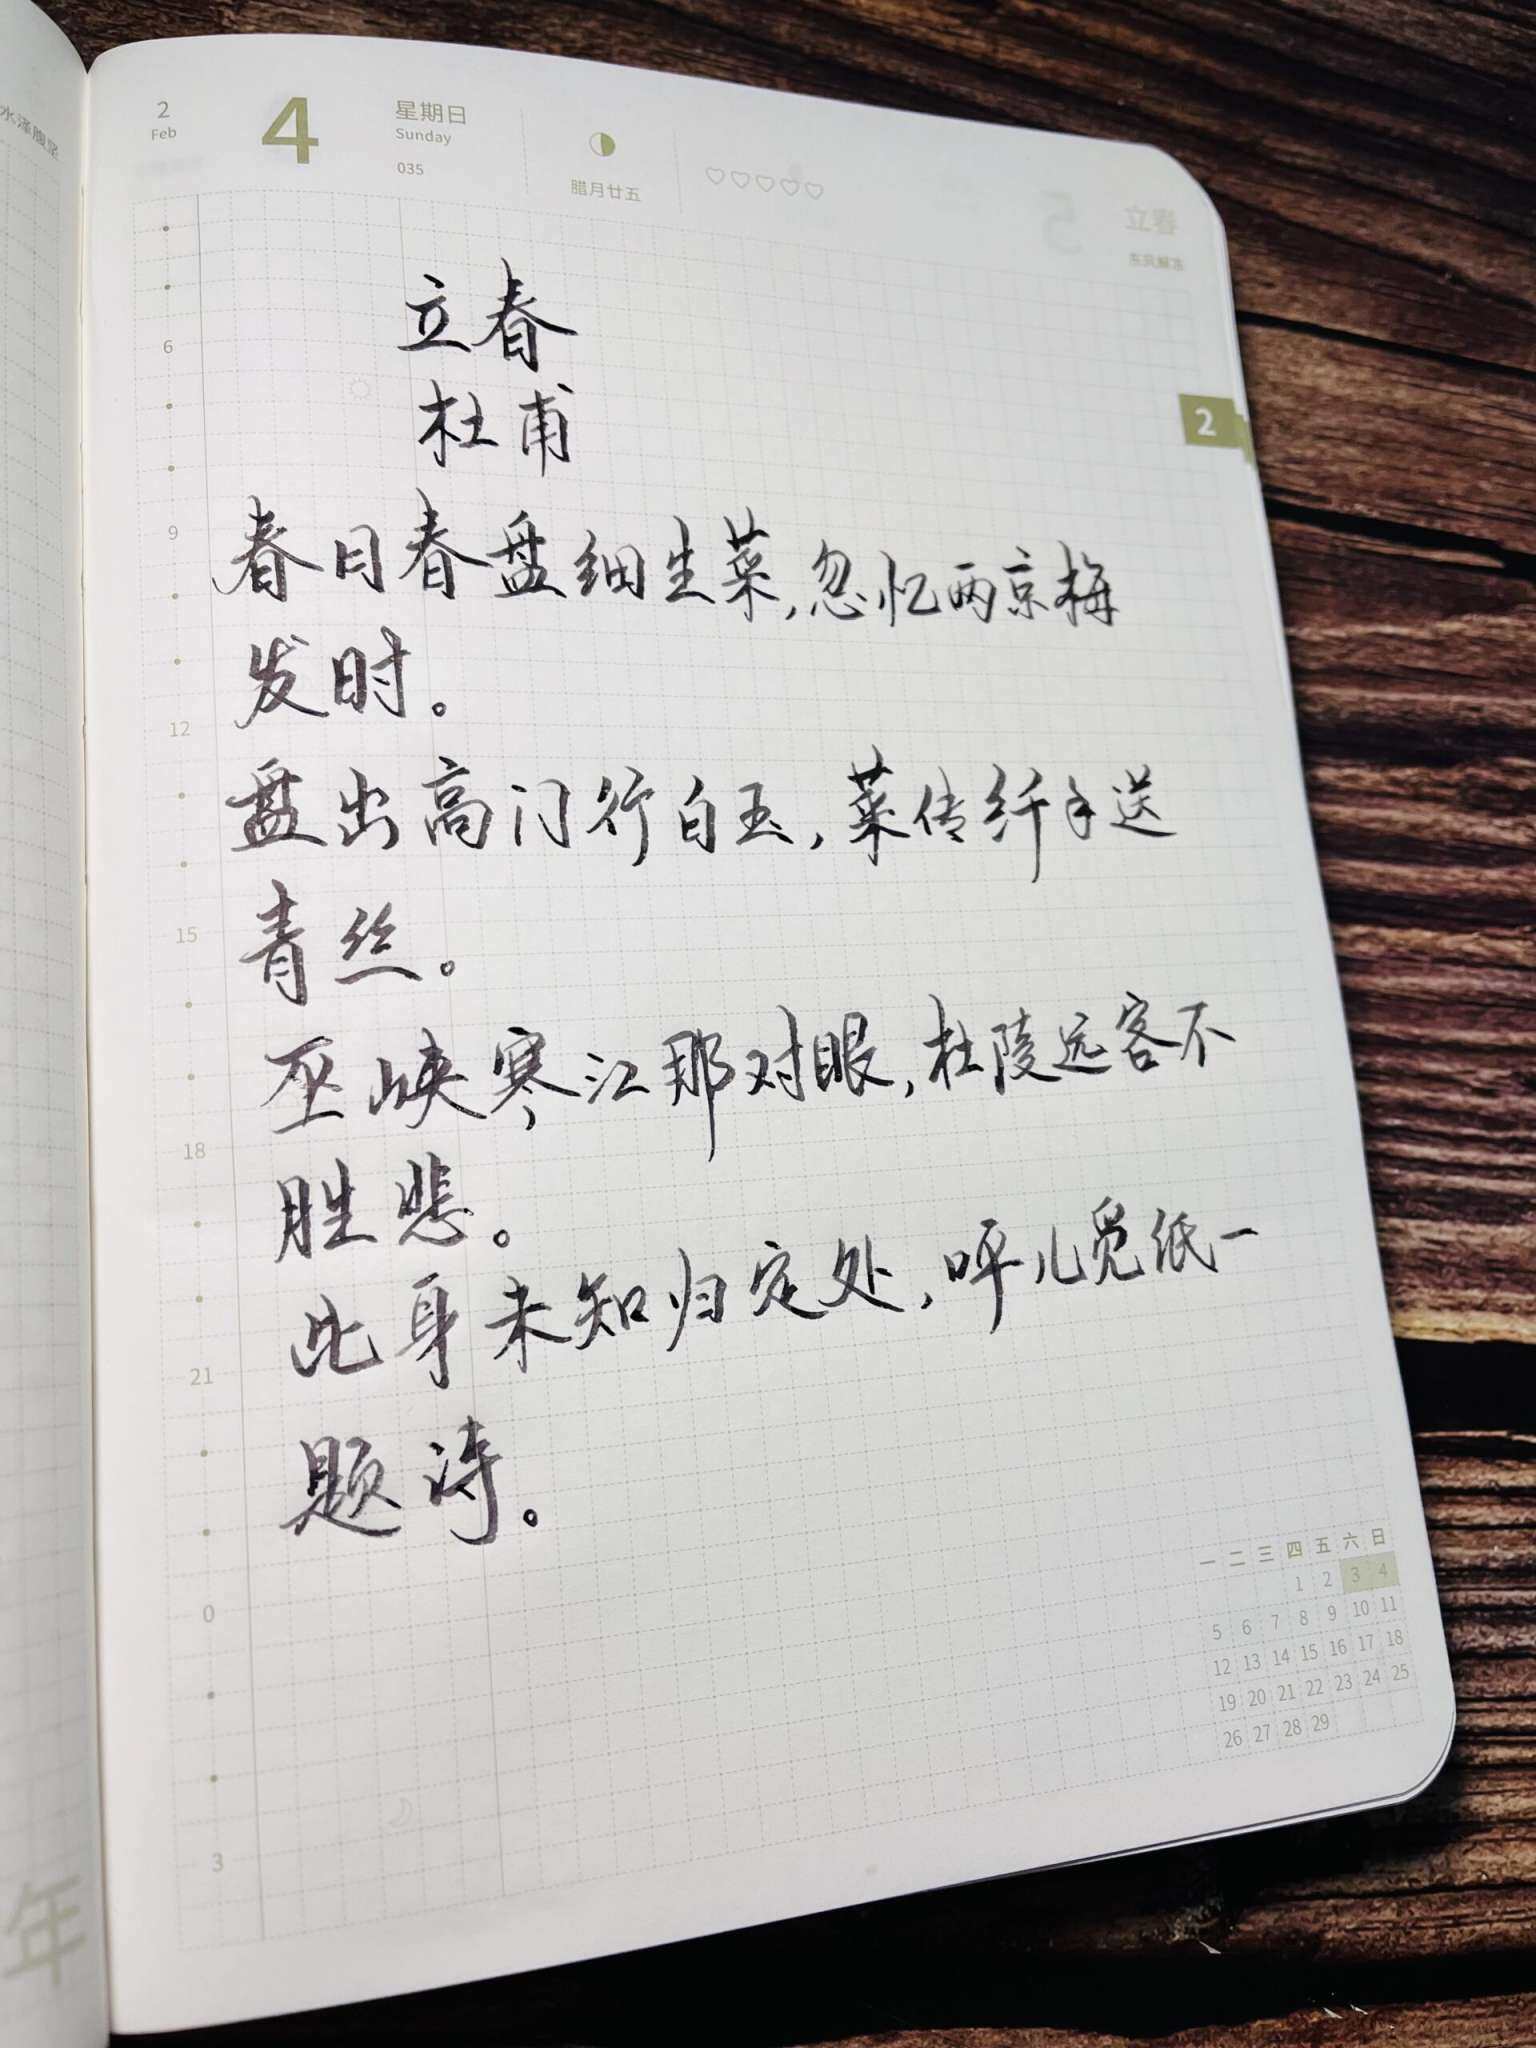 水泽腹坚
2
Feb
4
星期日
Sunday
035
腊月廿五
立春
东风解冻
2
立春
杜甫
春日春盘细生菜,忽忆两京梅
发时。
盘出高门行白玉,菜传纤手送
青丝。
巫峡寒江那对眼,杜陵远客不
胜悲。
此身未知归定处,呼儿觅纸一
题诗。
6
9
12
15
18
21
0
3
一 二 三 四 五 六 日
1 2 3 4
5 6 7 8 9 10 11
12 13 14 15 16 17 18
19 20 21 22 23 24 25
26 27 28 29
年